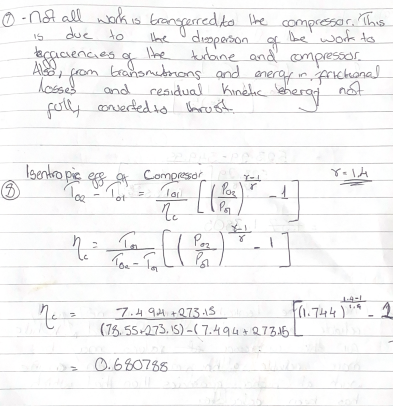 ⑦ - Not all work is transferred to the compressor. This
is due to the dispersion of the work to
efficiencies of the turbine and compressor.
Also, from transmutmons and energy in frictional
losses and residual kinetic energy not
fully converted to thrust.
Isentropic eff of Compressor
⑧ T02 - T01 = T01/ηc [(P02/P01)^(γ-1/γ) - 1] γ = 1.4
ηc = T01/(T02 - T01) [(P02/P01)^(γ-1/γ) - 1]
ηc = (7.494 + 273.15)/((78.55+273.15)-(7.494+273.15) [(1.744)^(1.4-1/1.4) - 1
= 0.680788